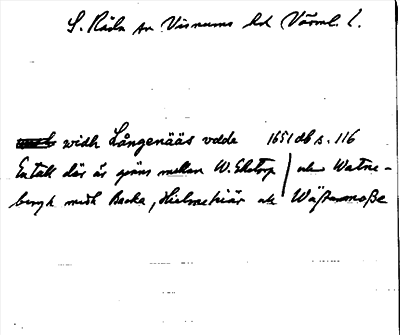 S. Råda sn Visnums hd Värml. l.
widh Långenääs vdde 1651 db s. 116
En tall där är gräns mellan W. Ekstorp / och Watne-
bergh medh Backa, Hielmekiär ok Wäßtermoße